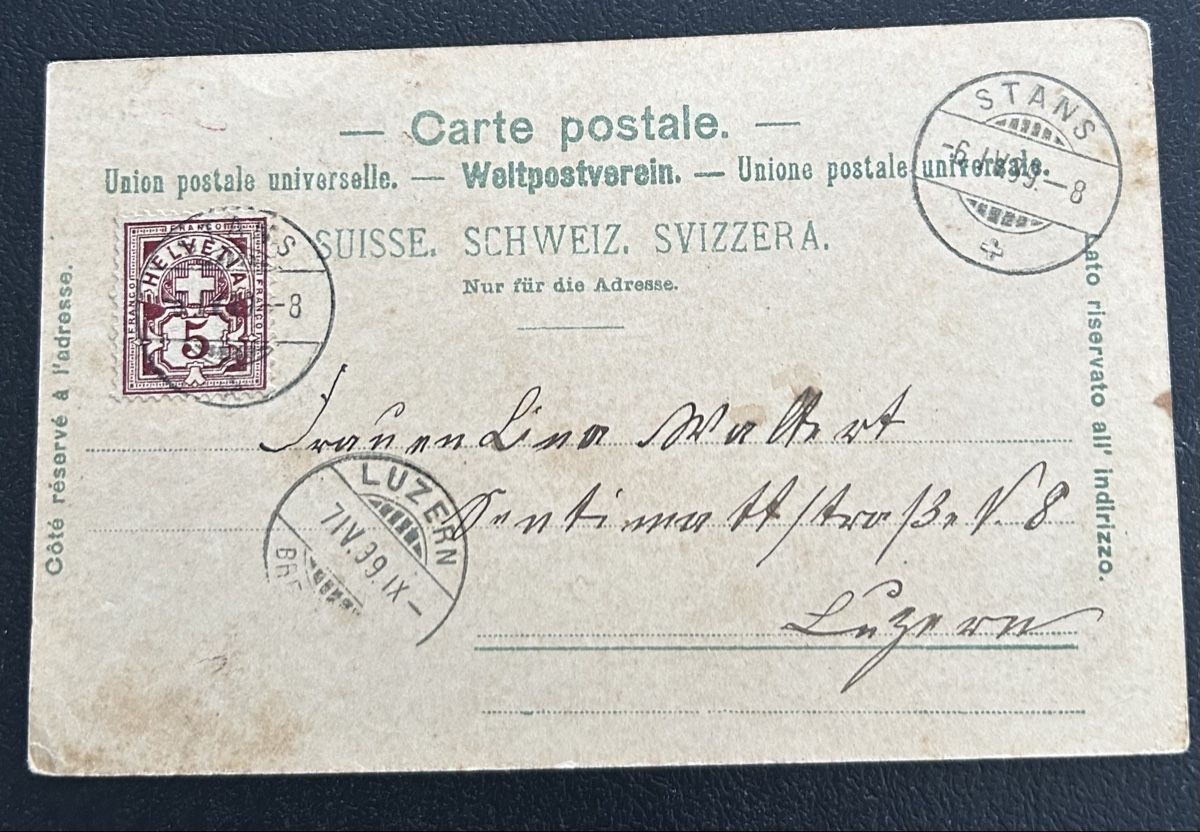 — Carte postale. —
Union postale universelle. — Weltpostverein. — Unione postale universale.
SUISSE. SCHWEIZ. SVIZZERA.
Nur für die Adresse.
Côté réservé à l'adresse.
Lato riservato all' indirizzo.
STANS
-6.IV.99.-8
FRANCO
HELVETIA
FRANCO
FRANCO
5
-8
Lina
LUZERN
7.IV.99.IX-
Sentimattstraße 8
Luzern